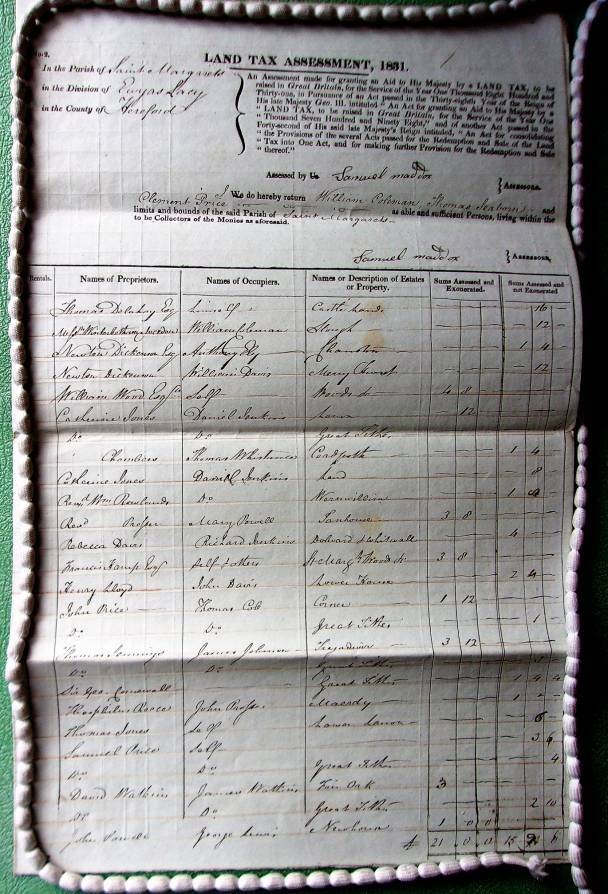 LAND TAX ASSESSMENT, 1831.
In the Parish of Saint Margarets
in the Division of Ewyas Lacy
in the County of Hereford
An Assessment made for granting an Aid to His Majesty by a LAND TAX, to be
raised in Great Britain, for the Service of the Year One Thousand Eight Hundred and
Thirty-one, in Pursuance of an Act passed in the Thirty-eighth Year of the Reign of
His late Majesty Geo. III. intituled "An Act for granting an Aid to His Majesty by a
"LAND TAX, to be raised in Great Britain, for the Service of the Year One
"Thousand Seven Hundred and Ninety Eight," and of another Act passed in the
Forty-second of His said late Majesty's Reign intituled, "An Act for consolidating
"the Provisions of several Acts passed for the Redemption and Sale of the Land
"Tax into One Act, and for making further Provision for the Redemption and Sale
"thereof."
Assessed by Us Samuel maddox } Assessors.
We do hereby return William Coleman, Thomas Seaborn and
Clement Price as able and sufficient Persons, living within the
limits and bounds of the said Parish of Saint Margarets
to be Collectors of the Monies as aforesaid.
Samuel maddox } Assessors,
Rentals. Names of Proprietors. Names of Occupiers. Names or Description of Estates or Property. Sums Assessed and Exonerated. Sums Assessed and not Exonerated
Thomas Delahay Esq himself 16 —
William Coleman Slough 12 —
Newton Dickenson Esq Anthony Chanston 1 4 —
Newton Dickenson William Davis 12 —
William Wood Esq Self Woods 4 8
Catherine Jones Daniel Jenkins 12
Do Do Great Tithes
Chambers Thomas 1 4 —
Catherine Jones Daniel Jenkins Land 8 —
Revd Wm Rowlands Do 1 4 —
Revd Prosser Mary Powell Tanhouse 3 8
Rebecca Davis Richard Jenkins 4 —
Francis Hamp Esq Self & others 3 8
Henry Lloyd John Davis Lower House 2 4 —
John Price Thomas Cole Corner 1 12
Do Do Great Tithes 1 —
Thomas Jennings James Johnson 3 12
Do Do Great Tithes
Sir Geo. Cornewall Great Tithes 1 4 4
Theophilus Reece John Prosser
Thomas Jones Self 6 —
Samuel Price Self 3 6
Do Do Great Tithes 4
David Watkins James Watkins Fair Oak 3
Do Do Great Tithes 2 10
John Powell George Lewis Newhouse 1 0 0
21 0 0 15 6